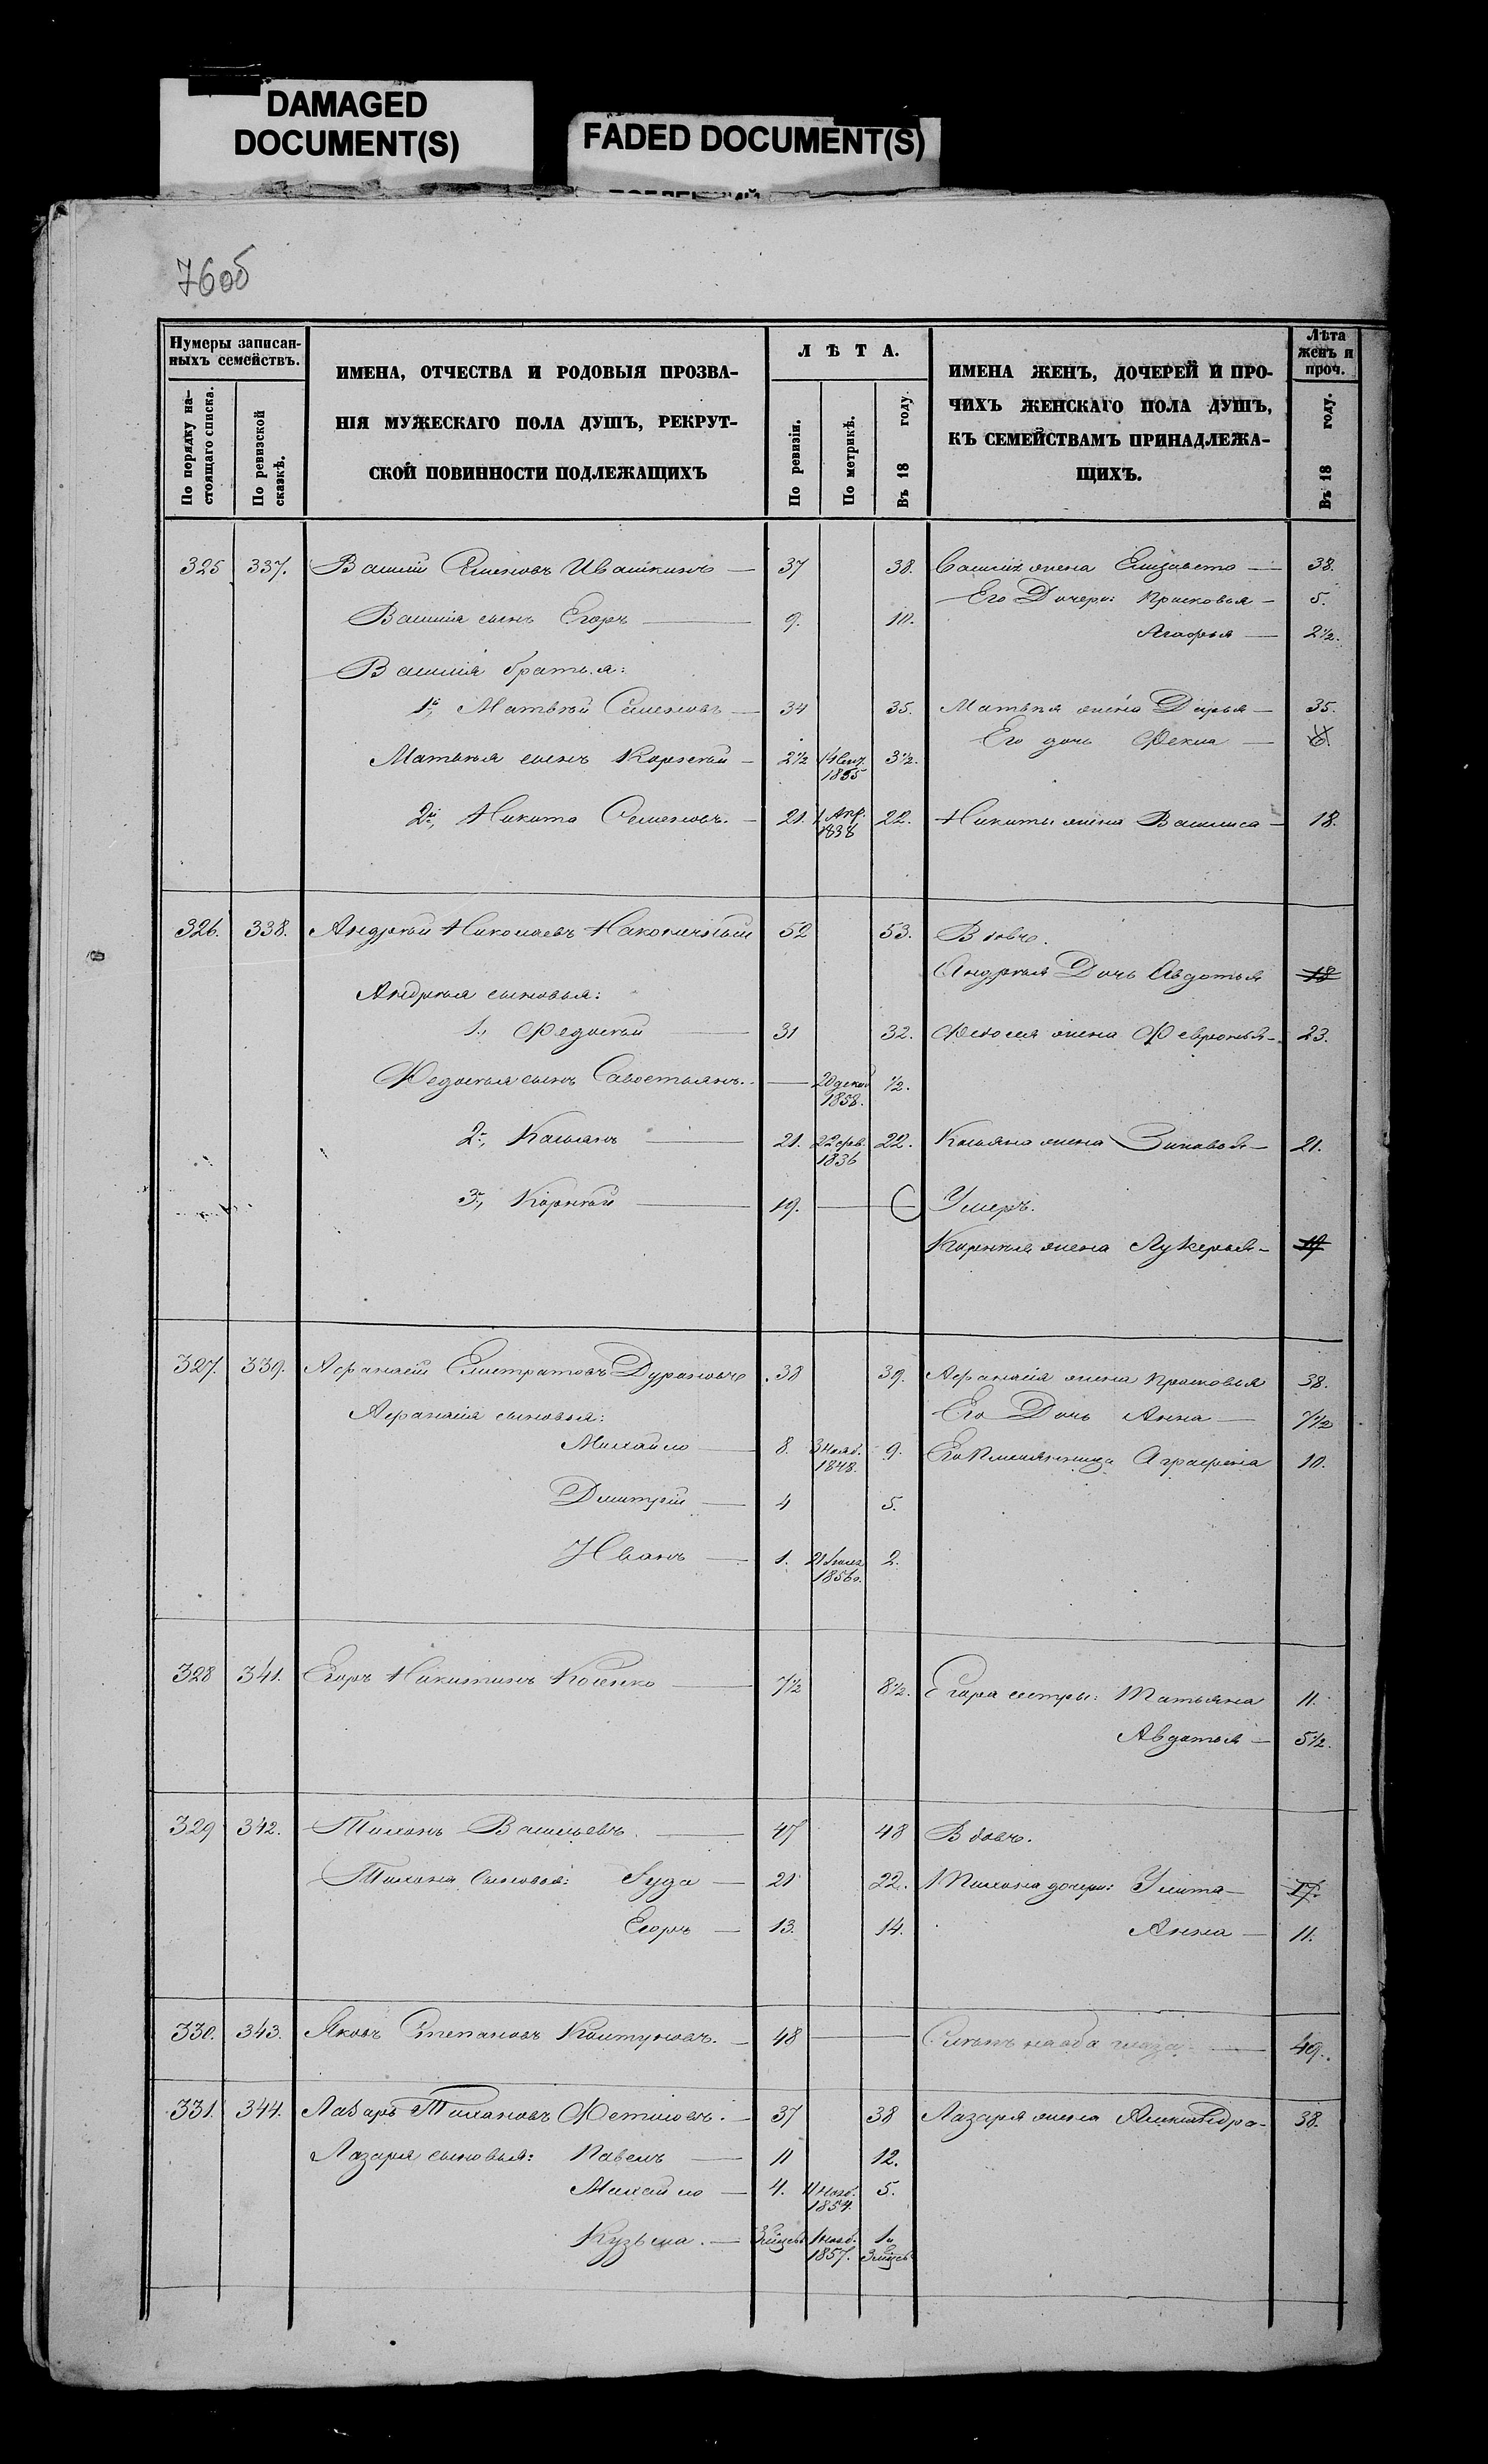 DAMAGED
DOCUMENT(S)
FADED DOCUMENT(S)
76об
Нумеры записан-
ныхъ семействъ.
По порядку на-
стоящаго списка.
По ревизской
сказкѣ.
ИМЕНА, ОТЧЕСТВА И РОДОВЫЯ ПРОЗВА-
НІЯ МУЖЕСКАГО ПОЛА ДУШЪ, РЕКРУТ-
СКОЙ ПОВИННОСТИ ПОДЛЕЖАЩИХЪ
ЛѢТА.
По ревизіи.
По метрикѣ.
Въ 18 году.
ИМЕНА ЖЕНЪ, ДОЧЕРЕЙ И ПРО-
ЧИХЪ ЖЕНСКАГО ПОЛА ДУШЪ,
КЪ СЕМЕЙСТВАМЪ ПРИНАДЛЕЖА-
ЩИХЪ.
Лѣта
женъ и
проч.
Въ 18 году.
325 337. Василій Семеновъ Ивашкинъ — 37 38. Василія жена Елизавета — 38.
Его Дочери: Прасковья — 5.
Василія сынъ Егоръ — 9. 10.
Агафья — 2½.
Василія братья:
1й, Матвѣй Семеновъ — 34 35. Матвѣя жена Дарья — 35.
Его дочь Фекла — 6.
Матвѣя сынъ Корнѣй — 2½ 14 Сент. 1855 3½.
2й, Никита Семеновъ. — 21. 1 Апр. 1838 22. Никиты жена Василиса — 18.
326. 338. Андрѣй Николаевъ 52 53. Вдовъ.
Андрѣя Дочь Авдотья 18
Андрѣя сыновья:
1., Федосѣй — 31 32. Федосея жена Февронья — 23.
Федосѣя сынъ Савостьянъ. — 20 декаб. 1858. ½.
2й, Касьянъ — 21. 22 фев. 1836 22. Касьяна жена Зиновья — 21.
3й, Корнѣй — 19. — Умеръ.
Корнѣя жена Лукерья — 19
327. 339. Афанасій Елистратовъ Дурановъ 38 39. Афанасія жена Прасковья 38.
Афанасія сыновья:
Его Дочь Анна — 7½
Михайло — 8. 3 Нояб. 1848. 9. Его Племянница Аграфена 10.
Дмитрій — 4 5.
Иванъ — 1. 1856. 2.
328 341. Егоръ Никитинъ — 7½ 8½. Егора сестры: Татьяна 11.
Авдотья — 5½.
329 342. Тихонъ Васильевъ. — 47 48 Вдовъ.
Тихона Сыновья: Іуда — 21 22. Тихона дочери: Улита — 17.
Егоръ — 13. 14. Анна — 11.
330. 343. Яковъ Степановъ Колтуновъ. — 48 — Слѣпъ на оба глаза — 49.
331. 344. Лазарь Тихановъ Фетисовъ. — 37 38 Лазаря жена Александра — 38.
Лазаря сыновья: Павелъ — 11 12.
Михайло — 4. Нояб. 1854. 5.
Кузьма. — 3 мѣсяц. 1 нояб. 1857. 1 и 3 мѣсяц.